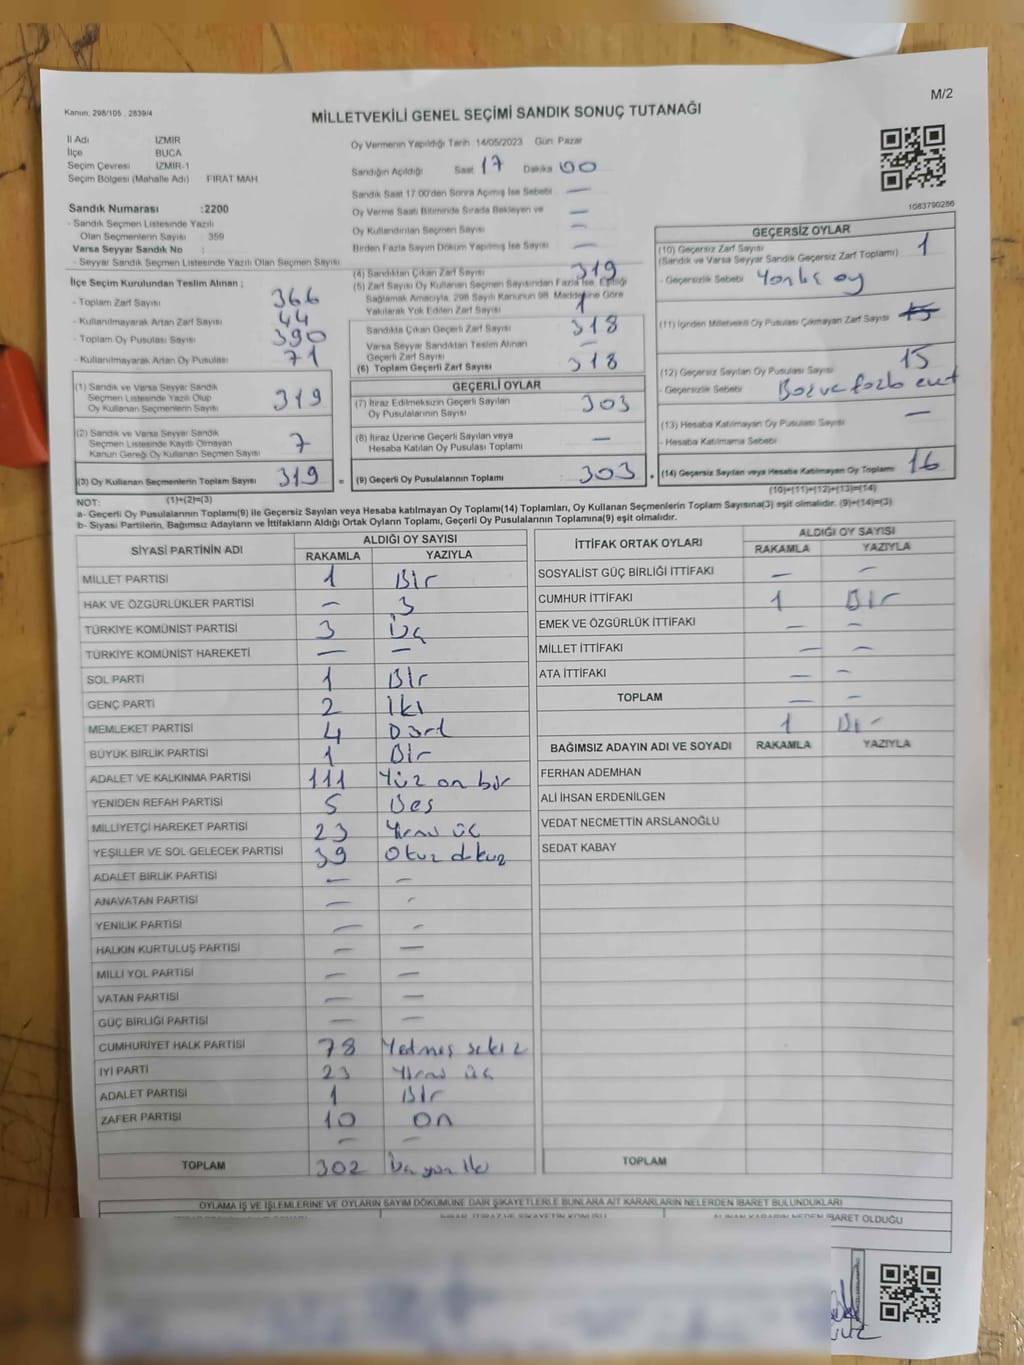 M/2
Kanun: 298/105 , 2839/4
MİLLETVEKİLİ GENEL SEÇİMİ SANDIK SONUÇ TUTANAĞI
İl Adı : İZMİR
İlçe BUCA
Seçim Çevresi İZMİR-1
Seçim Bölgesi (Mahalle Adı) FIRAT MAH.
Oy Vermenin Yapıldığı Tarih 14/05/2023 Gün: Pazar
Sandığın Açıldığı Saat 17 Dakika 00
Sandık Saat 17:00'den Sonra Açılmış İse Sebebi —
Oy Verme Saati Bitiminde Sırada Bekleyen ve —
Oy Kullandırılan Seçmen Sayısı —
Birden Fazla Sayım Döküm Yapılmış İse Sayısı —
1083790286
Sandık Numarası :2200
- Sandık Seçmen Listesinde Yazılı
Olan Seçmenlerin Sayısı : 359
Varsa Seyyar Sandık No :
- Seyyar Sandık Seçmen Listesinde Yazılı Olan Seçmen Sayısı
İlçe Seçim Kurulundan Teslim Alınan ;
- Toplam Zarf Sayısı 366
- Kullanılmayarak Artan Zarf Sayısı 44
- Toplam Oy Pusulası Sayısı 390
- Kullanılmayarak Artan Oy Pusulası 71
(1) Sandık ve Varsa Seyyar Sandık
Seçmen Listesinde Yazılı Olup
Oy Kullanan Seçmenlerin Sayısı 319
(2) Sandık ve Varsa Seyyar Sandık
Seçmen Listesinde Kayıtlı Olmayan
Kanun Gereği Oy Kullanan Seçmen Sayısı 7
(3) Oy Kullanan Seçmenlerin Toplam Sayısı 319 =
(1)+(2)=(3)
(4) Sandıktan Çıkan Zarf Sayısı 319
(5) Zarf Sayısı Oy Kullanan Seçmen Sayısından Fazla İse, Eşitliği
Sağlamak Amacıyla, 298 Sayılı Kanunun 98. Maddesine Göre
Yakılarak Yok Edilen Zarf Sayısı 1
Sandıkta Çıkan Geçerli Zarf Sayısı 318
Varsa Seyyar Sandıktan Teslim Alınan
Geçerli Zarf Sayısı —
(6) Toplam Geçerli Zarf Sayısı 318
GEÇERLİ OYLAR
(7) İtiraz Edilmeksizin Geçerli Sayılan
Oy Pusulalarının Sayısı 303
(8) İtiraz Üzerine Geçerli Sayılan veya
Hesaba Katılan Oy Pusulası Toplamı —
(9) Geçerli Oy Pusulalarının Toplamı 303 +
GEÇERSİZ OYLAR
(10) Geçersiz Zarf Sayısı
(Sandık ve Varsa Seyyar Sandık Geçersiz Zarf Toplamı) 1
- Geçersizlik Sebebi Yanlış oy
(11) İçinden Milletvekili Oy Pusulası Çıkmayan Zarf Sayısı
(12) Geçersiz Sayılan Oy Pusulası Sayısı 15
- Geçersizlik Sebebi Boş ve fazla evet
(13) Hesaba Katılmayan Oy Pusulası Sayısı —
- Hesaba Katılmama Sebebi
(14) Geçersiz Sayılan veya Hesaba Katılmayan Oy Toplamı 16
(10)+(11)+(12)+(13)=(14)
NOT:
a- Geçerli Oy Pusulalarının Toplamı(9) ile Geçersiz Sayılan veya Hesaba katılmayan Oy Toplamı(14) Toplamları, Oy Kullanan Seçmenlerin Toplam Sayısına(3) eşit olmalıdır. (9)+(14)=(3)
b- Siyasi Partilerin, Bağımsız Adayların ve İttifakların Aldığı Ortak Oyların Toplamı, Geçerli Oy Pusulalarının Toplamına(9) eşit olmalıdır.
SİYASİ PARTİNİN ADI ALDIĞI OY SAYISI
RAKAMLA YAZIYLA
MİLLET PARTİSİ 1 Bir
HAK VE ÖZGÜRLÜKLER PARTİSİ — 3
TÜRKİYE KOMÜNİST PARTİSİ 3 Üç
TÜRKİYE KOMÜNİST HAREKETİ — —
SOL PARTİ 1 Bir
GENÇ PARTİ 2 İki
MEMLEKET PARTİSİ 4 Dört
BÜYÜK BİRLİK PARTİSİ 1 Bir
ADALET VE KALKINMA PARTİSİ 111 Yüz on bir
YENİDEN REFAH PARTİSİ 5 Beş
MİLLİYETÇİ HAREKET PARTİSİ 23 Yirmi üç
YEŞİLLER VE SOL GELECEK PARTİSİ 39 Otuz dokuz
ADALET BİRLİK PARTİSİ — —
ANAVATAN PARTİSİ — -
YENİLİK PARTİSİ — —
HALKIN KURTULUŞ PARTİSİ — —
MİLLİ YOL PARTİSİ — —
VATAN PARTİSİ — —
GÜÇ BİRLİĞİ PARTİSİ — —
CUMHURİYET HALK PARTİSİ 78 Yetmiş sekiz
İYİ PARTİ 23 Yirmi üç
ADALET PARTİSİ 1 Bir
ZAFER PARTİSİ 10 on
— —
TOPLAM 302 Üç yüz iki
İTTİFAK ORTAK OYLARI ALDIĞI OY SAYISI
RAKAMLA YAZIYLA
SOSYALİST GÜÇ BİRLİĞİ İTTİFAKI — —
CUMHUR İTTİFAKI 1 Bir
EMEK VE ÖZGÜRLÜK İTTİFAKI — —
MİLLET İTTİFAKI — —
ATA İTTİFAKI — —
TOPLAM — —
1 Bir
BAĞIMSIZ ADAYIN ADI VE SOYADI RAKAMLA YAZIYLA
FERHAN ADEMHAN
ALİ İHSAN ERDENİLGEN
VEDAT NECMETTİN ARSLANOĞLU
SEDAT KABAY
TOPLAM
OYLAMA İŞ VE İŞLEMLERİNE VE OYLARIN SAYIM DÖKÜMÜNE DAİR ŞİKAYETLERLE BUNLARA AİT KARARLARIN NELERDEN İBARET BULUNDUKLARI
İBARET OLDUĞU